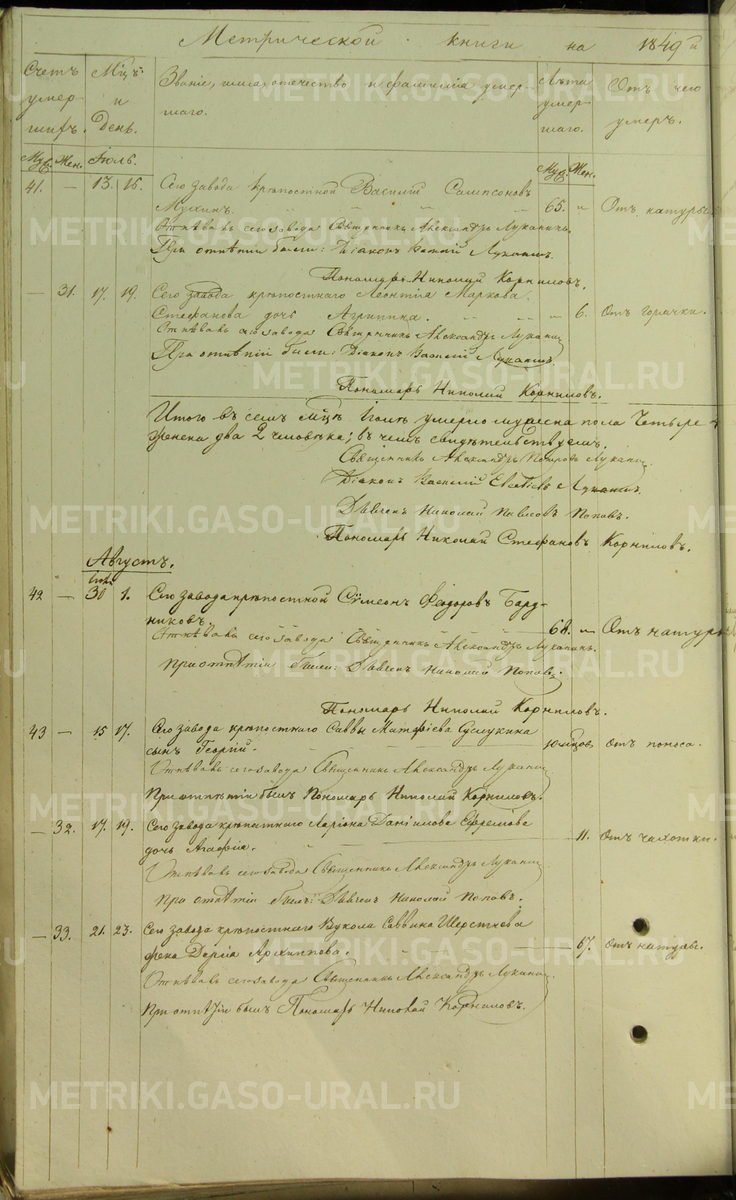 Метрической книги на 1849 й
Счетъ умершихъ. Мцъ и День. Званіе, имя, отечество и фамилія умершаго. Лѣта умершаго. Отъ чего умеръ.
Муж. Жен. Іюль. Муж. Жен.
41. — 13. 15. Сего завода крѣпостной Василій Сампсоновъ
Мухинъ. 65. " Отъ натуры
Отпѣвалъ сего завода Священникъ Александръ Луканинъ.
При отпѣтіи были: Діаконъ Василій Луканинъ.
Пономарь Николай Корниловъ.
— 31. 17. 19. Сего завода крѣпостнаго Леонтія Маркова
Стефанова дочь Агрипина. 6. Отъ горячки.
Отпѣвалъ сего завода Священникъ Александръ Луканинъ
При отпѣтіи были: Діаконъ Василій Луканинъ.
Пономарь Николай Корниловъ.
Итого въ семъ мцѣ Іюлѣ умерло мужеска пола Четыре 4
женска два 2 человѣка; въ чемъ свидѣтельствуемъ.
Священникъ Александръ Петровъ Луканин
Діаконъ Василій Луканинъ.
Дьячекъ Николай Павловъ Поповъ.
Пономарь Николай Стефановъ Корниловъ.
Августъ.
Іюля
42 — 30 1. Сего завода крѣпостной Сѵмеонъ Ѳеодоровъ Бард-
никовъ. 68. " Отъ натуры
Отпѣвалъ сего завода Священникъ Александръ Луканинъ.
При отпѣтіи были: Дьячекъ Николай Поповъ.
Пономарь Николай Корниловъ.
43 — 15 17. Сего завода крѣпостнаго Саввы Матѳіева Суслукина
сынъ Георгій. 10 мцов. Отъ поноса.
Отпѣвалъ сего завода Священникъ Александръ Луканин
При отпѣтіи былъ Пономарь Николай Корниловъ.
— 32. 17. 19. Сего завода крѣпостнаго Ларіона Даніилова Ефремова
дочь Агафія. 11. Отъ чахотки.
Отпѣвалъ сего завода Священникъ Александръ Луканин
При отпѣтіи былъ: Дьячекъ Николай Поповъ.
— 33. 21. 23. Сего завода крѣпостнаго Вукола Саввина Шерсткова
жена Дарія Архиппова. 67. Отъ натуры.
Отпѣвалъ сего завода Священникъ Александръ Луканин
При отпѣтіи былъ Пономарь Николай Корниловъ.
METRIKI.GASO-URAL.RU